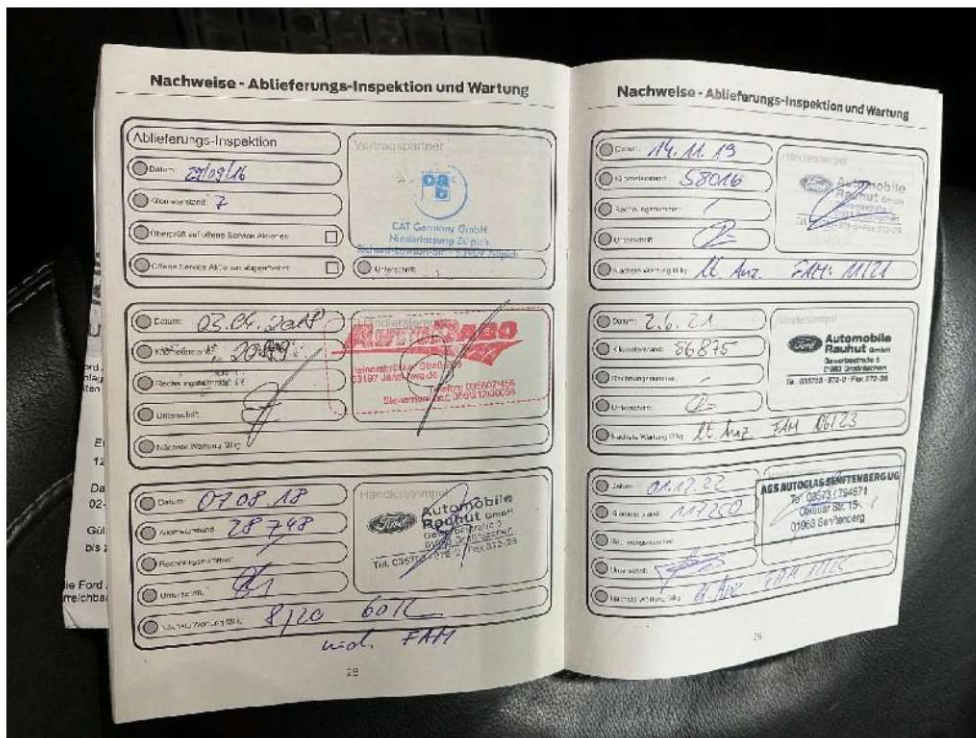 Nachweise - Ablieferungs-Inspektion und Wartung
Ablieferungs-Inspektion
Vertragspartner
Datum: 29/09/16
Kilometerstand: 7
Überprüft auf offene Service Aktionen
Offene Service Aktionen abgearbeitet
CAT Germany GmbH
Niederlassung Zülpich
53909 Zülpich
Unterschrift:
Datum: 03.04.2018
Kilometerstand:
Händlerstempel
Rechnungsnummer:
Unterschrift:
Nächste Wartung fällig:
Datum: 07.08.18
Kilometerstand: 28748
Rechnungsnummer:
Unterschrift:
Nächste Wartung fällig: 8/20 60T
incl. FAM
Händlerstempel
Ford
Automobile
Rauhut GmbH
28
Nachweise - Ablieferungs-Inspektion und Wartung
Datum: 14.11.19
Kilometerstand: 58016
Rechnungsnummer:
Unterschrift:
Nächste Wartung fällig: lt. Anz. FAM: 11/21
Händlerstempel
Ford
Automobile
Rauhut GmbH
Datum: 2.6.21
Kilometerstand: 86875
Rechnungsnummer:
Unterschrift:
Nächste Wartung fällig: lt. Anz. FAM 06/23
Händlerstempel
Ford
Automobile
Rauhut GmbH
Gewerbestraße 5
01983 Großräschen
Tel. 035753-372-0 · Fax 372-26
Datum: 01.12.22
Kilometerstand: 117250
Rechnungsnummer:
Unterschrift:
Nächste Wartung fällig: lt. Anz FAM
AGS AUTOGLAS SENFTENBERG UG
Tel. 03573 / 794671
Str. 15
01968 Senftenberg